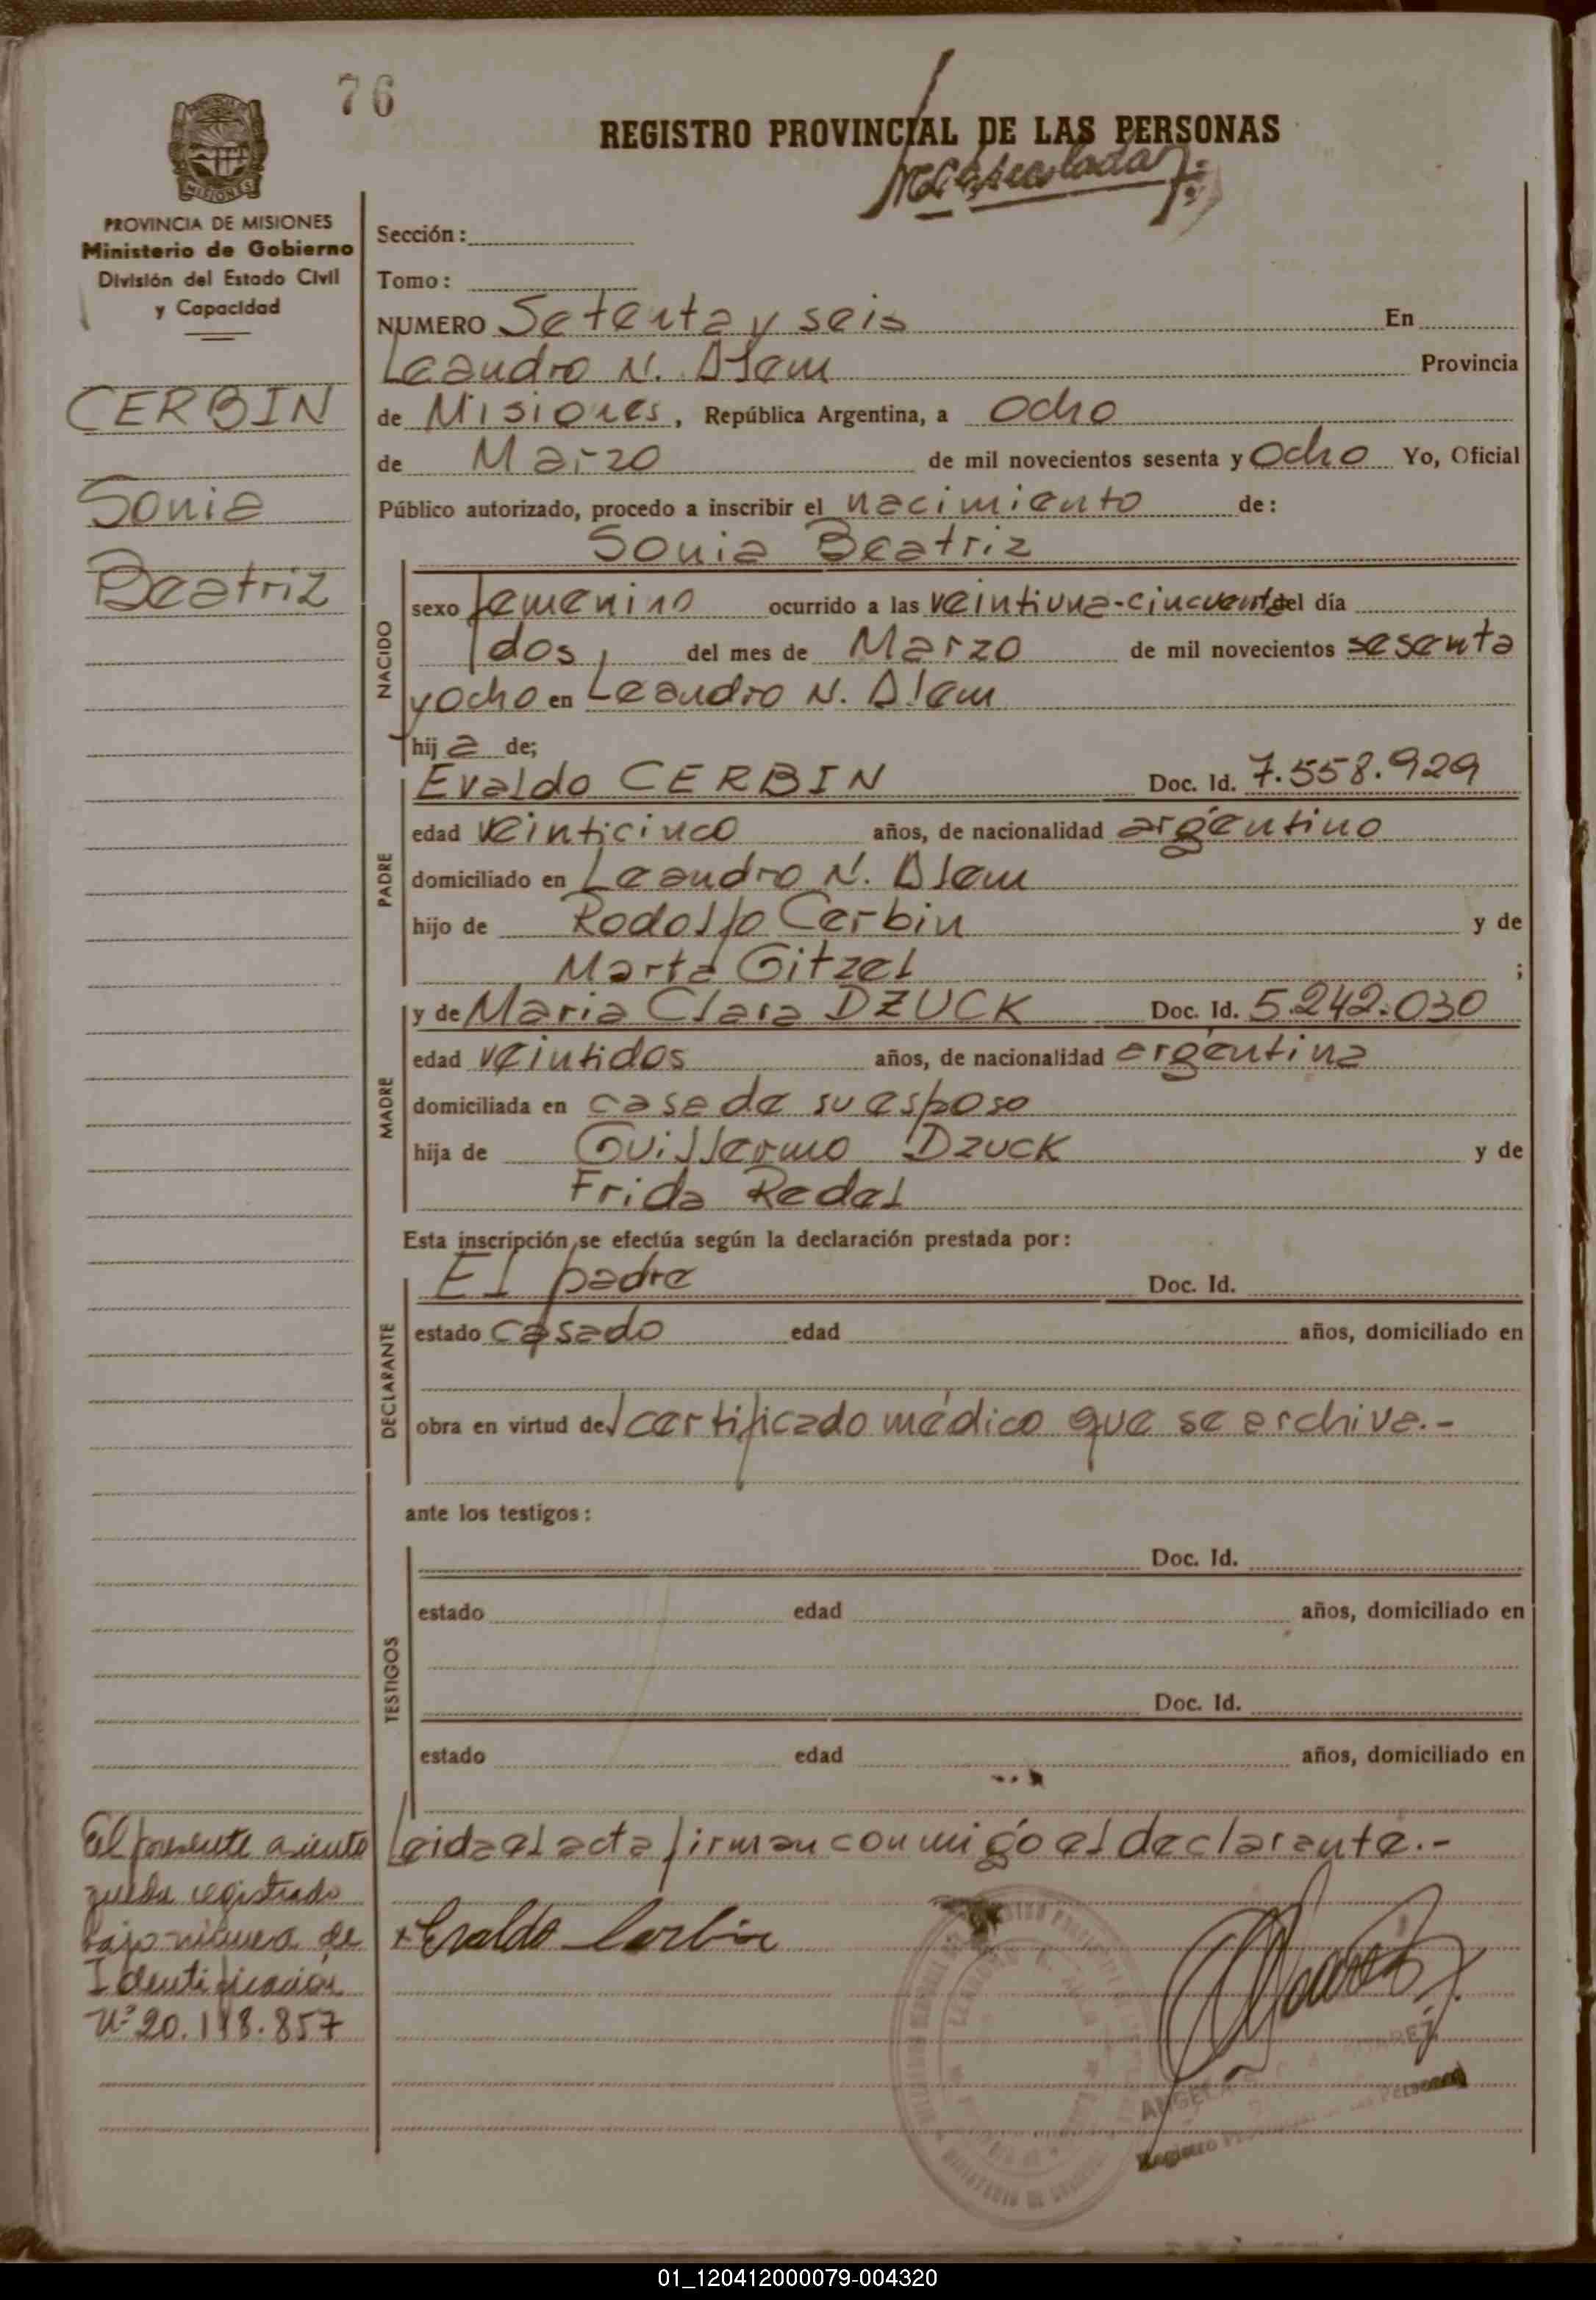 76
REGISTRO PROVINCIAL DE LAS PERSONAS
MISIONES
PROVINCIA DE MISIONES
Ministerio de Gobierno
División del Estado Civil
y Capacidad
CERBIN
Sonia
Beatriz
Sección:
Tomo:
NUMERO Setenta y seis En
Leandro N. Alem Provincia
de Misiones, República Argentina, a Ocho
de Marzo de mil novecientos sesenta y Ocho Yo, Oficial
Público autorizado, procedo a inscribir el nacimiento de:
Sonia Beatriz
NACIDO
sexo femenino ocurrido a las veintiuna-cincuenta del día
dos, del mes de Marzo de mil novecientos sesenta
y ocho en Leandro N. Alem
hija de;
PADRE
Evaldo CERBIN Doc. Id. 7.558.929
edad veinticinco años, de nacionalidad argentino
domiciliado en Leandro N. Alem
hijo de Rodolfo Cerbin y de
Marta Gitzel ;
MADRE
y de Maria Clara DZUCK Doc. Id. 5.242.030
edad veintidos años, de nacionalidad argentina
domiciliada en casa de su esposo
hija de Guillermo Dzuck y de
Frida Redel
Esta inscripción se efectúa según la declaración prestada por:
DECLARANTE
El padre Doc. Id.
estado casado edad años, domiciliado en
obra en virtud de certificado médico que se archiva.-
ante los testigos:
TESTIGOS
Doc. Id.
estado edad años, domiciliado en
Doc. Id.
estado edad años, domiciliado en
Leida el acta firman conmigo el declarante.-
Evaldo Cerbin
El presente asiento
queda registrado
bajo número de
Identificación
Nº 20.118.857
01_120412000079-004320